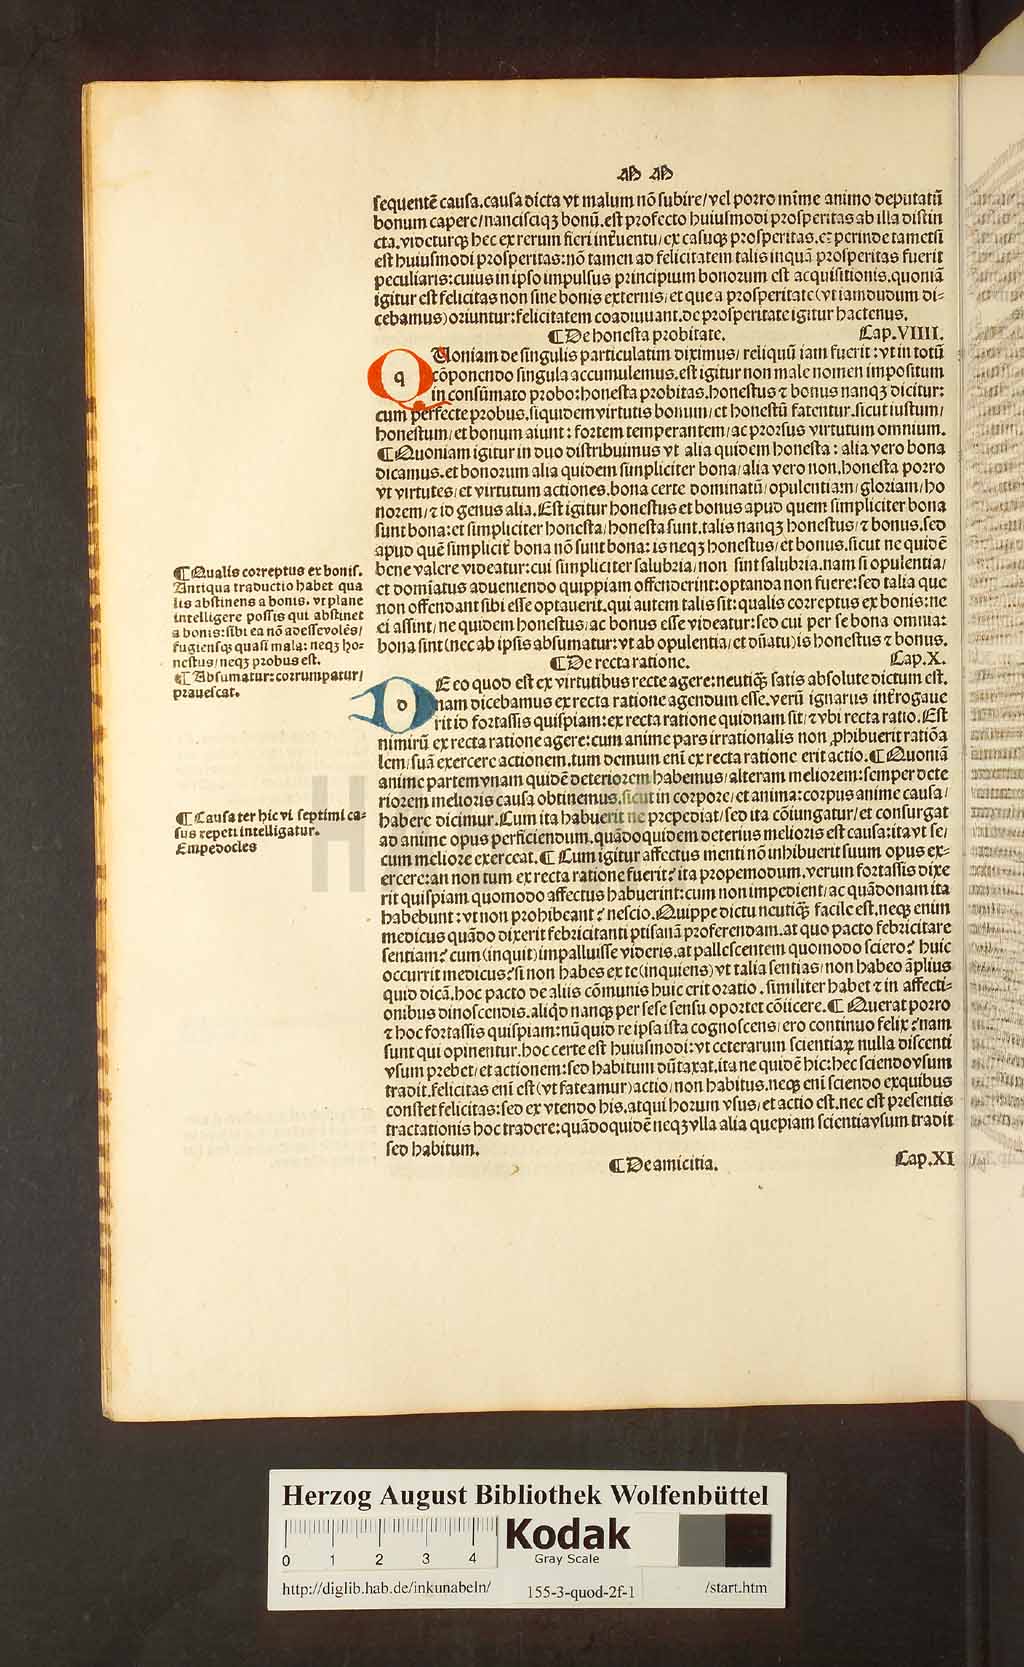 M M
sequentē causa.causa dicta vt malum nō subire/vel porro mīme animo deputatū
bonum capere/nanciſciqꝫ bonū.eſt profecto huiuſmodi proſperitas ab illa diſtin
cta.videturqꝫ hec ex rerum fieri int̄uentu/ex caſuqꝫ proſperitas.et perinde tametſi
eſt huiuſmodi proſperitas:nō tamen ad felicitatem talis inquā proſperitas fuerit
peculiaris:cuius in ipſo impulſus principium bonorum eſt acquiſitionis.quoniā
igitur eſt felicitas non ſine bonis externis/et que a proſperitate(vt iamdudum di-
cebamus)oriuntur:felicitatem coadiuuant.de proſperitate igitur hactenus.
¶De honeſta probitate. Cap.VIIII.
q Uoniam de ſingulis particulatim diximus/reliquū iam fuerit:vt in totū
cōponendo ſingula accumulemus.eſt igitur non male nomen impoſitum
in conſūmato probo:honeſta probitas.honeſtus ⁊ bonus nanqꝫ dicitur:
cum perfecte probus.ſiquidem virtutis bonum/et honeſtū fatentur.ſicut iuſtum/
honeſtum/et bonum aiunt:fortem temperantem/ac prorſus virtutum omnium.
¶Quoniam igitur in duo diſtribuimus vt alia quidem honeſta:alia vero bona
dicamus.et bonorum alia quidem ſimpliciter bona/alia vero non.honeſta porro
vt virtutes/et virtutum actiones.bona certe dominatū/opulentiam/gloriam/ho
norem/⁊ id genus alia.Eſt igitur honeſtus et bonus apud quem ſimpliciter bona
ſunt bona:et ſimpliciter honeſta/honeſta ſunt.talis nanqꝫ honeſtus/⁊ bonus.ſed
apud quē ſimplicit̄ bona nō ſunt bona:is neqꝫ honeſtus/et bonus.ſicut ne quidē
bene valere videatur:cui ſimpliciter ſalubria/non ſint ſalubria.nam ſi opulentia/
et domīatus adueniendo quippiam offenderint:optanda non fuere:ſed talia que
non offendant ſibi eſſe optauerit.qui autem talis ſit:qualis correptus ex bonis:ne
ei aſſint/ne quidem honeſtus/ac bonus eſſe videatur:ſed cui per ſe bona omnia:
bona ſint(nec ab ipſis abſumatur:vt ab opulentia/et dn̄atu)is honeſtus ⁊ bonus.
¶Qualis correptus ex bonis.
Antiqua traductio habet qua
lis abſtinens a bonis. vt plane
intelligere poſſis qui abſtinet
a bonis:ſibi ea nō adeſſe volēs/
fugienſqꝫ quaſi mala:neqꝫ ho-
neſtus/neqꝫ probus eſt.
¶Abſumatur:corrumpatur/
praueſcat.
¶De recta ratione. Cap.X.
d E eo quod eſt ex virtutibus recte agere:neutiqꝫ ſatis abſolute dictum eſt.
nam dicebamus ex recta ratione agendum eſſe.verū ignarus int̄rogaue
rit id fortaſſis quiſpiam:ex recta ratione quidnam ſit/⁊ vbi recta ratio.Eſt
nimirū ex recta ratione agere:cum anime pars irrationalis non ꝓhibuerit ratiōa
lem/ſuā exercere actionem.tum demum eni ex recta ratione erit actio.¶Quoniā
anime partem vnam quidē deteriorem habemus/alteram meliorem:ſemper dete
riorem melioris cauſa obtinemus.ſicut in corpore/et anima:corpus anime cauſa/
habere dicimur.Cum ita habuerit ne prepediat/ſed ita cōiungatur/et conſurgat
ad anime opus perficiendum.quādoquidem deterius melioris eſt cauſa:ita vt ſe/
cum meliore exerceat.¶Cum igitur affectus menti nō inhibuerit ſuum opus ex-
ercere:an non tum ex recta ratione fuerit?ita propemodum.verum fortaſſis dixe
rit quiſpiam quomodo affectus habuerint:cum non impedient/ac quādonam ita
habebunt:vt non prohibeant?neſcio.Quippe dictu neutiqꝫ facile eſt.neqꝫ enim
medicus quādo dixerit febricitanti ptiſanā proferendam.at quo pacto febricitare
ſentiam?cum(inquit)impalluiſſe videris.at palleſcentem quomodo ſciero? huic
occurrit medicus?ſi non habes ex te(inquiens)vt talia ſentias/non habeo āplius
quid dicā.hoc pacto de aliis cōmunis huic erit oratio.ſimiliter habet ⁊ in affecti-
onibus dinoſcendis.aliqd nanqꝫ per ſeſe ſenſu oportet cōiicere.¶Querat porro
⁊ hoc fortaſſis quiſpiam:nū quid re ipſa iſta cognoſcens/ero continuo felix?nam
ſunt qui opinentur.hoc certe eſt huiuſmodi:vt ceterarum ſcientiaꝝ nulla diſcenti
vſum prebet/et actionem:ſed habitum dūtaxat.ita ne quidē hic:hec ſciendo vſum
tradit.felicitas eni eſt(vt fateamur)actio/non habitus.neqꝫ eni ſciendo ex quibus
conſtet felicitas:ſed ex vtendo his.atqui horum vſus/et actio eſt.nec eſt preſentis
tractationis hoc tradere:quādoquidē neqꝫ vlla alia quepiam ſcientia vſum tradit
ſed habitum.
¶Cauſa ter hic vi ſeptimi ca-
ſus repeti intelligatur.
Empedocles
¶De amicitia. Cap.XI
Herzog August Bibliothek Wolfenbüttel
0 1 2 3 4
Kodak
Gray Scale
http://diglib.hab.de/inkunabeln/ 155-3-quod-2f-1 /start.htm